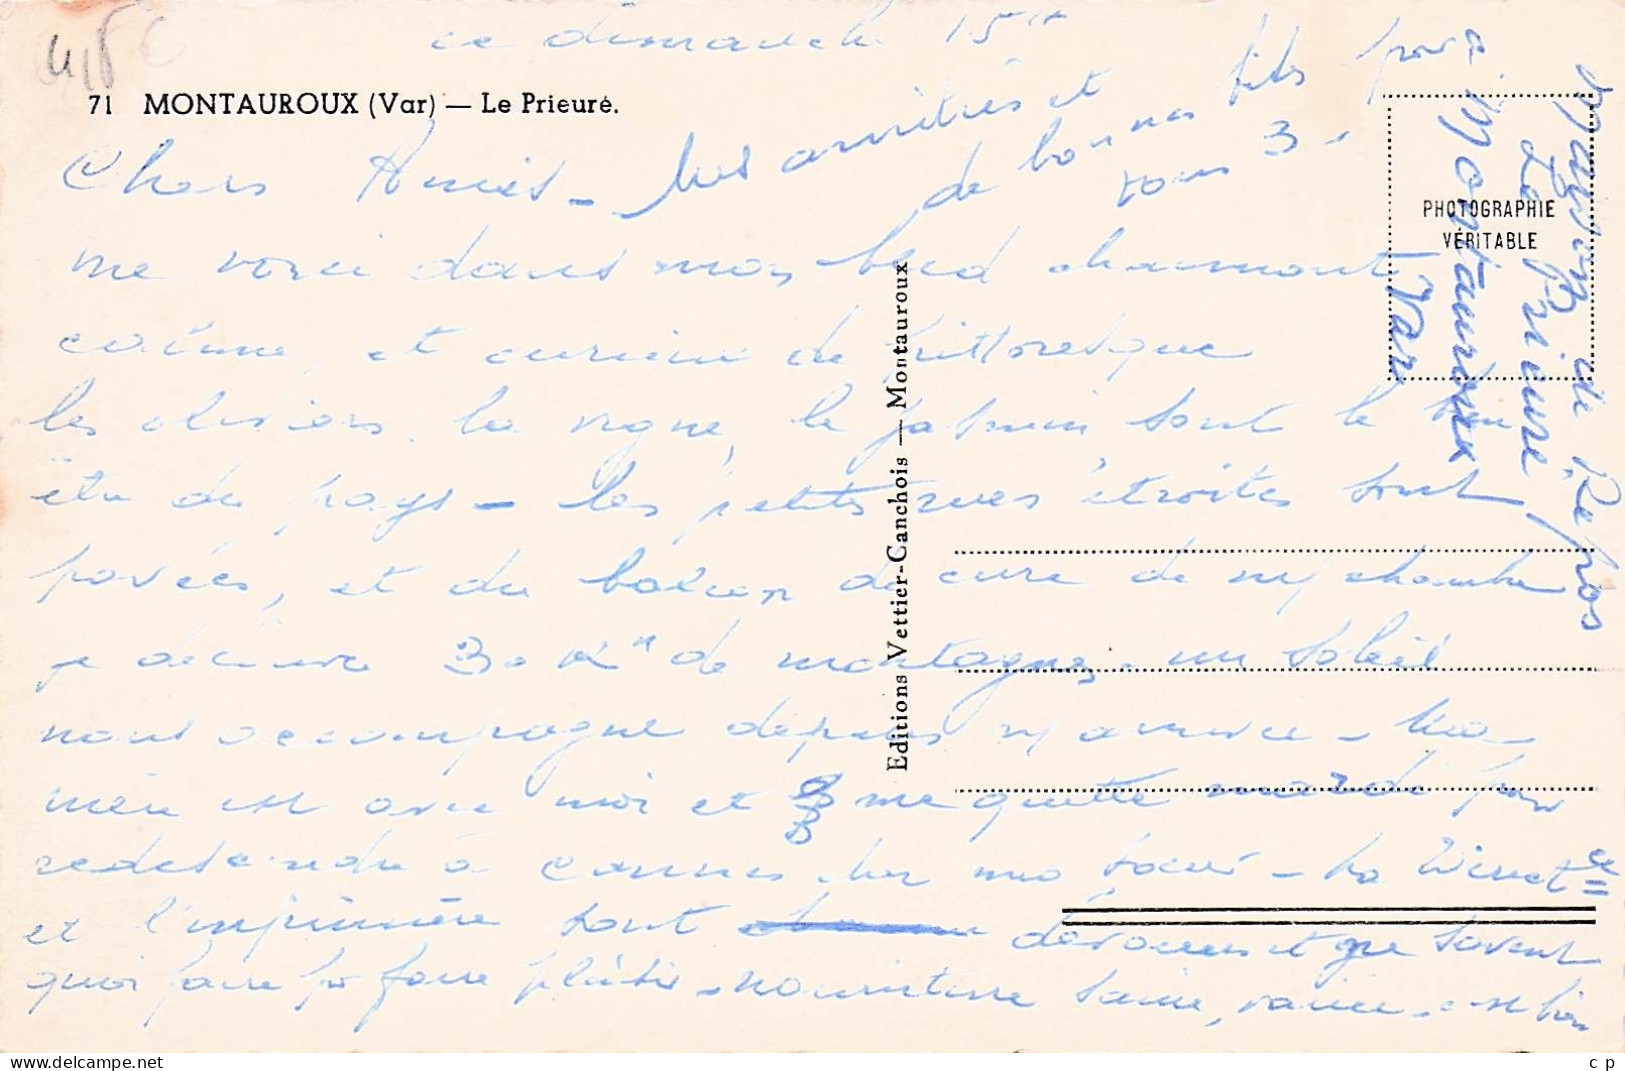 ce dimanche 15
71 MONTAUROUX (Var) — Le Prieuré.
Chers Amies - mes amitiés et
de bonnes fêtes pour
tous 3 -
me voici dans mon charmant
et curieux de pittoresque
les oliviers, la vigne, le jasmin sont le
du pays - les petites rues étroites sont
pavées, et du balcon de cure de ma chambre
je découvre 30 Km de montagnes - un soleil
nous accompagne depuis mon arrivée -
mère est avec moi et me quitte mardi pour
redescendre à Cannes chez ma soeur - La Direct ce
et l'infirmière sont dévouées et que savent
quoi faire pr faire plaisir - nourriture saine, variée - est bien
Maison de Repos
Le Prieuré
à Montauroux
Var
PHOTOGRAPHIE
VÉRITABLE
Editions Vettier-Canchois — Montauroux
www.delcampe.net
c p